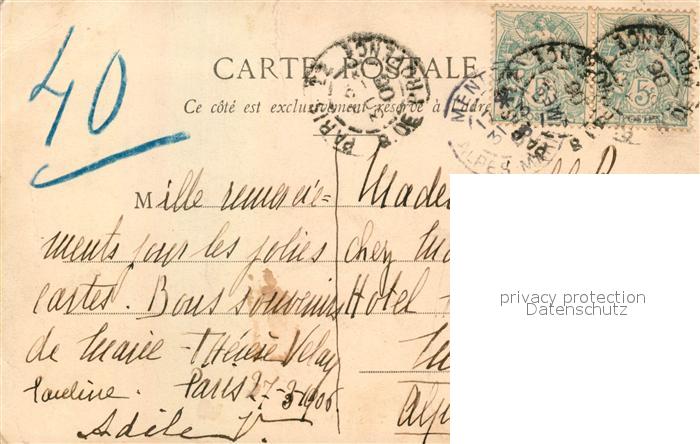 40
CARTE POSTALE
Ce côté est exclusivement réservé à l'adre
PARIS
PROVENCE
MEN
ALPES MARIT
5c
POSTES
Mille remercie-
ments pour les jolies
cartes. Bons souvenirs
de Marie - Thérèse Velay
Pauline. Paris 27-3-1906.
Adèle V.
Madem
chez Ma
Hotel
Alp
privacy protection
Datenschutz